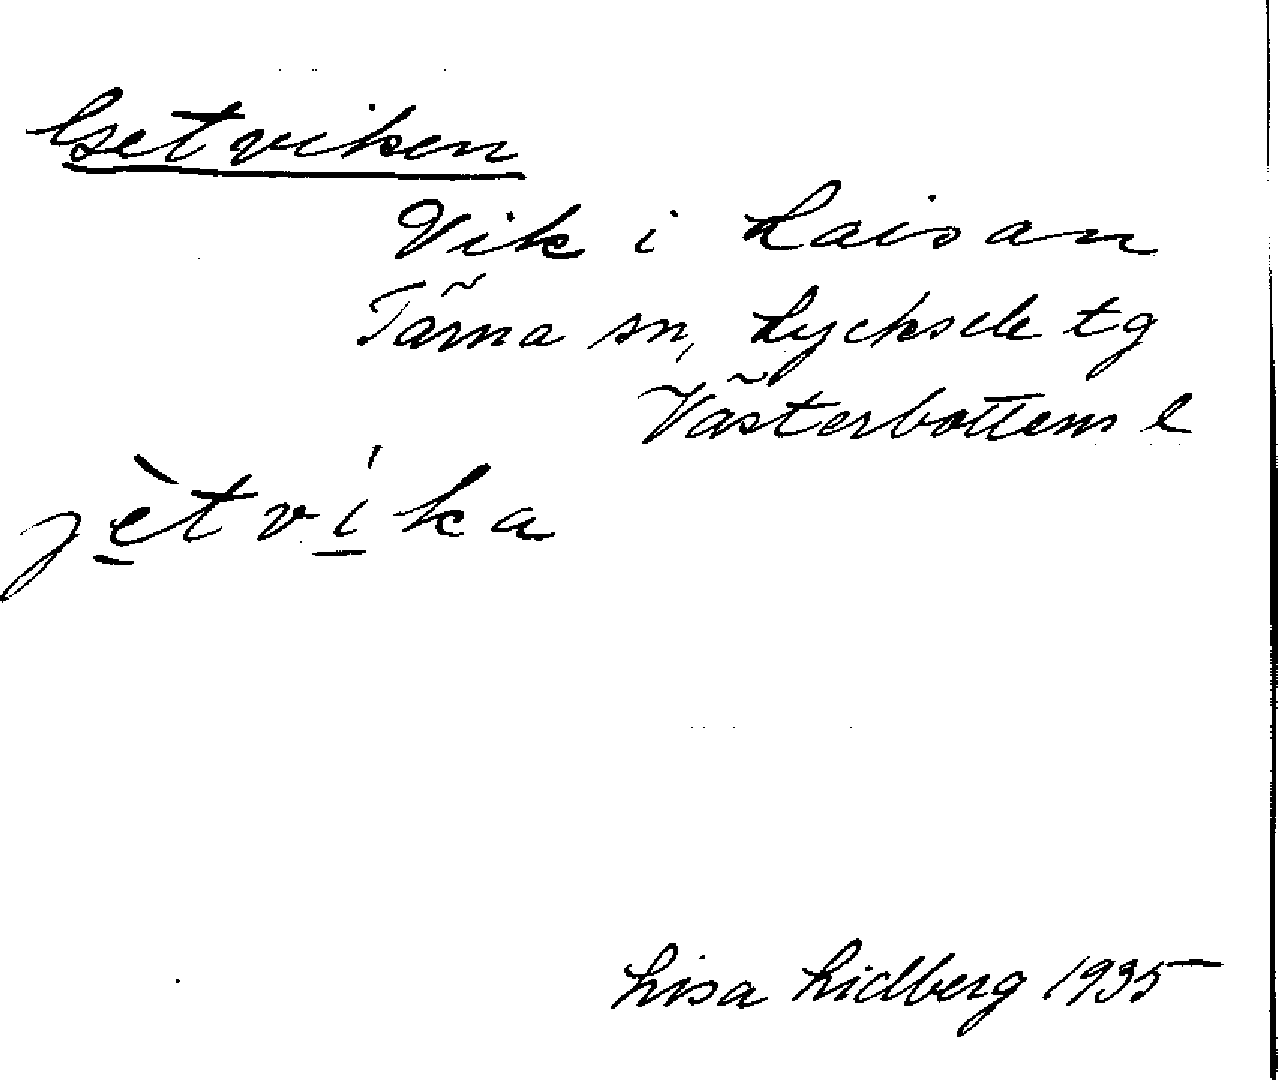 Getviken
Vik i Laisan
Tärna sn, Lycksele tg
Västerbottens l
jètvíka
Lisa Lidberg 1935